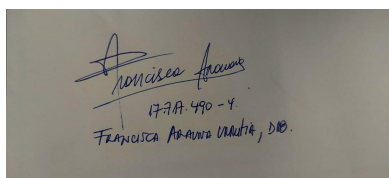 Francisca Aravena
17.717.490-4.
FRANCISCA ARAVENA URRUTIA, DOB.